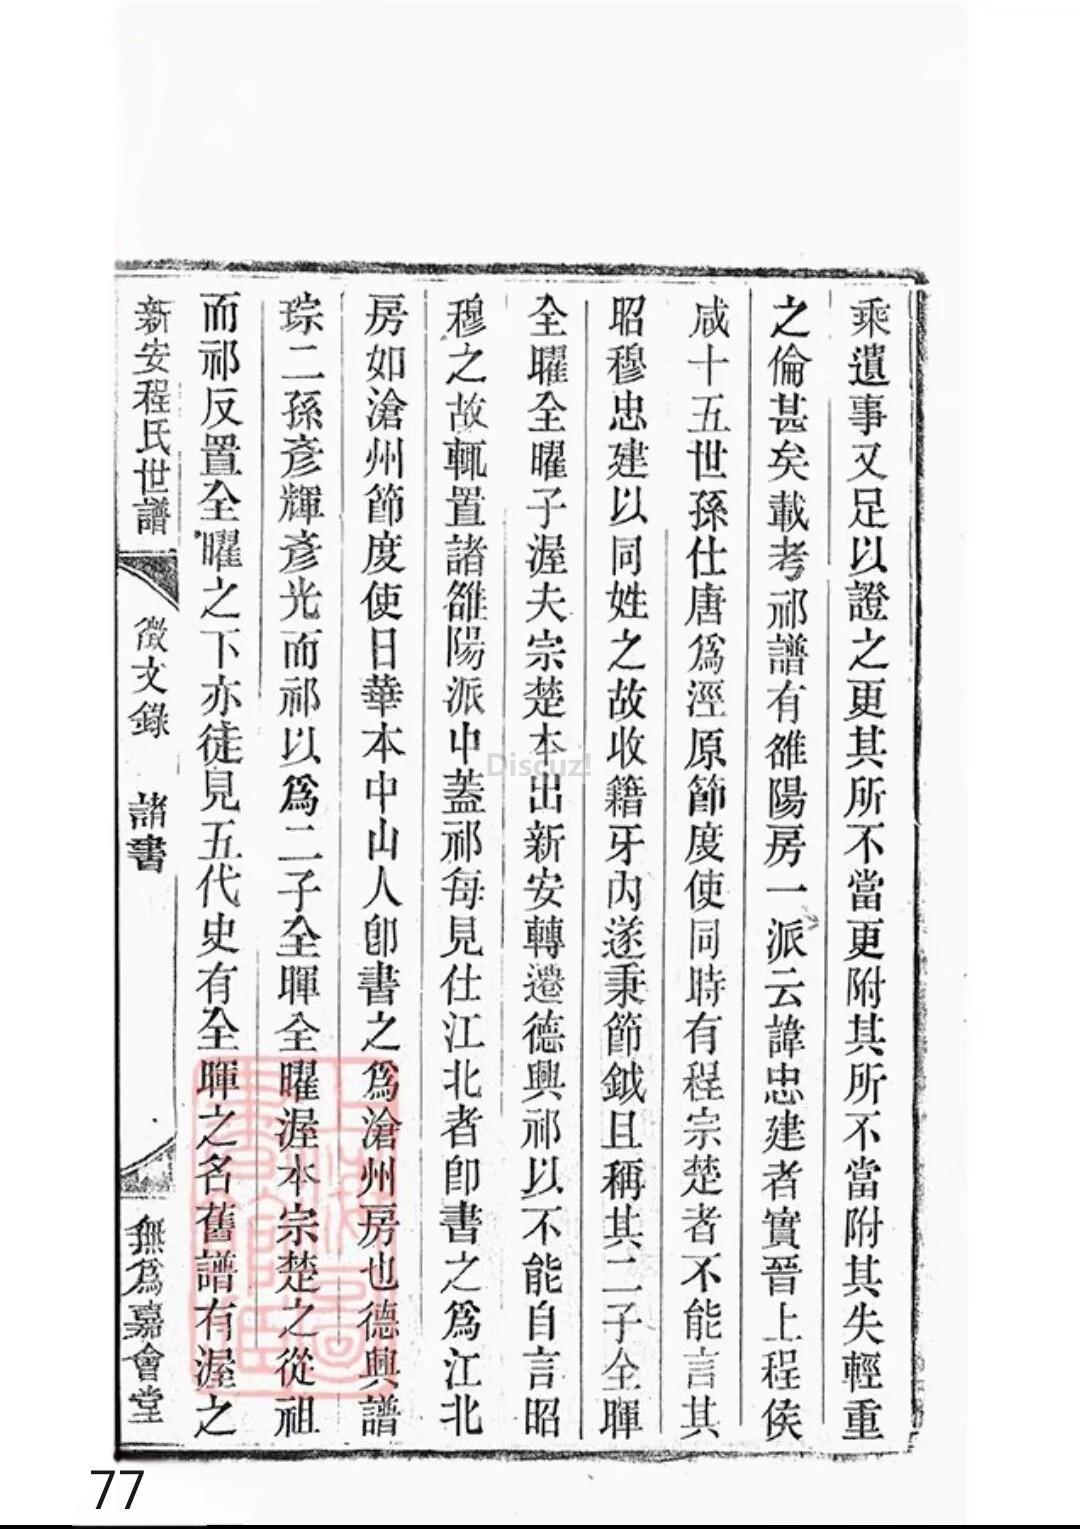 乘遺事又足以證之更其所不當更附其所不當附其失輕重
之倫甚矣載考祁譜有雒陽房一派云諱忠建者實晉上程侯
咸十五世孫仕唐爲涇原節度使同時有程宗楚者不能言其
昭穆忠建以同姓之故收籍牙內遂秉節鉞且稱其二子全暉
全曜全曜子渥夫宗楚本出新安轉遷德興祁以不能自言昭
穆之故輒置諸雒陽派中蓋祁每見仕江北者卽書之爲江北
房如滄州節度使日華本中山人卽書之爲滄州房也德興譜
琮二孫彥輝彥光而祁以爲二子全暉全曜渥本宗楚之從祖
而祁反置全曜之下亦徒見五代史有全暉之名舊譜有渥之
新安程氏世譜 徵文錄 諸書 無爲嘉會堂
Discuz!
77